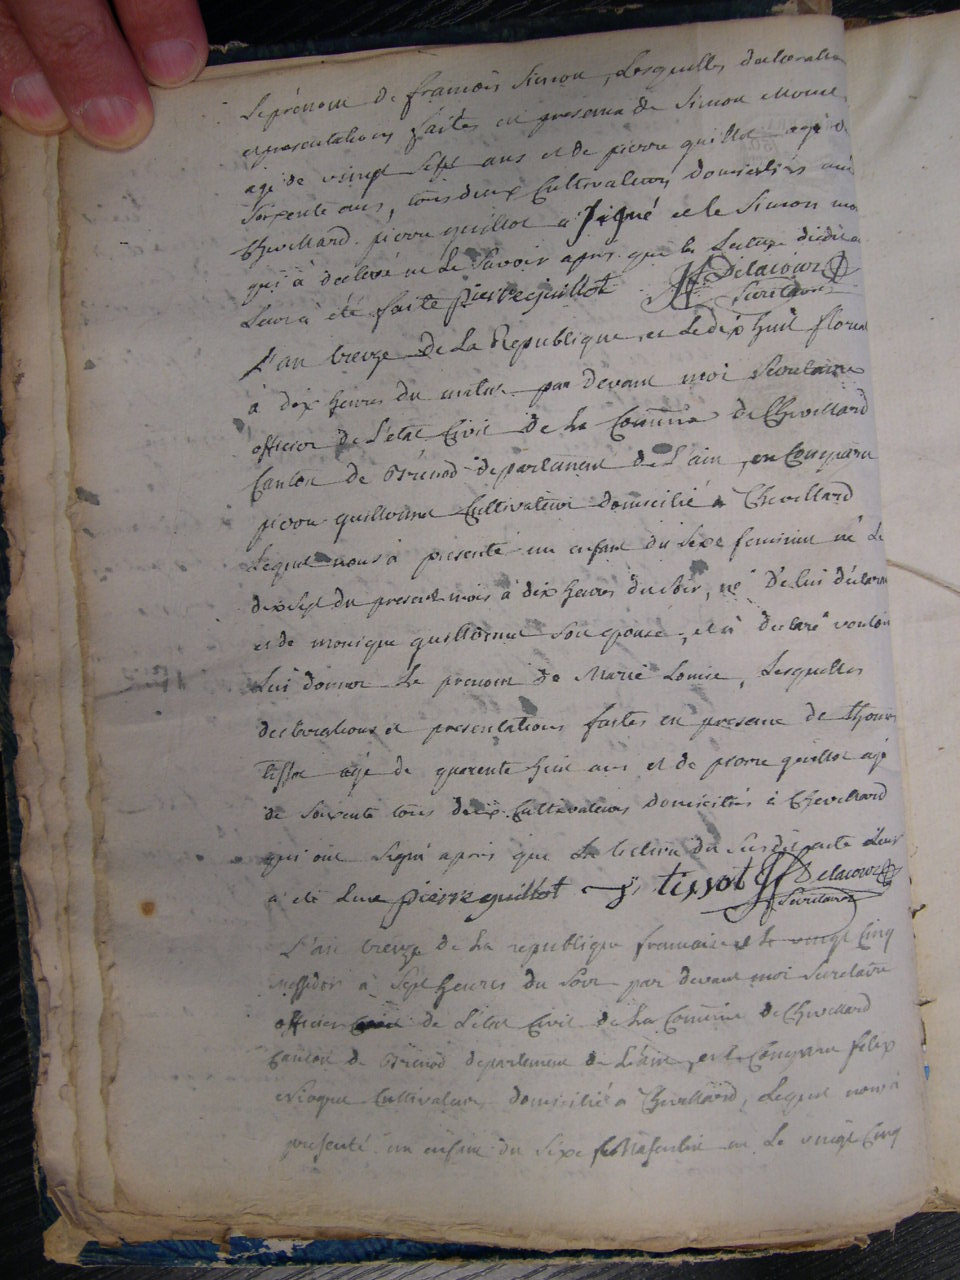 Le prénom de francois Simon, Lesquelles declaration
et presentations faites en presence de Simon
agé de vingt Sept ans et de pierre guillot agé de
Soixente ans, tous deux Cultivateurs domiciliés aud
Chevillard. pierre guillot a Signé et le Simon
qui à declaré ne le Savoir apres que la Lecture
Leur à été faite pierre guillot Delacour
Secretaire
L'an treize de La Republique, et Le dix huit floreal
à dix heures du matin par devant moi Secretaire
officier de L'etat Civil de la Comune de Chevillard
Canton de Brénod departement de L'ain, en Comparu
pierre guillerme Cultivateur domicilié a Chevillard
Lequel nous à presenté un enfant du Sexe feminin né Le
dix Sept du present mois à dix heures du Soir, né De lui déclarant
et de monique guillerme Son epouse, et à declaré vouloir
Lui donner Le prenom de Marie Louise, Lesquelles
declarations et presentations faites en presence de
tissot agé de quarente huit ans et de pierre guillot agé
de Soixente tous deux Cultivateurs domiciliés à Chevillard
qui ont Signé apres que La lecture du Susdit acte Leur
à été Lue pierre guillot tissot Delacour
Secretaire
L'an treize de La republique francaise et le vingt Cinq
messidor à Sept heures du Soir par devant moi Secretaire
officier de L'etat Civil de La Comune de Chevillard
Canton de Brénod departement de L'ain, est Comparu felix
Cultivateur domicilié a Chevillard, Lequel nous à
presenté un enfant du Sexe Masculin né Le vingt Cinq